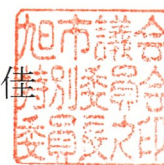 佳
旭市議会
特別委員会
委員長之印